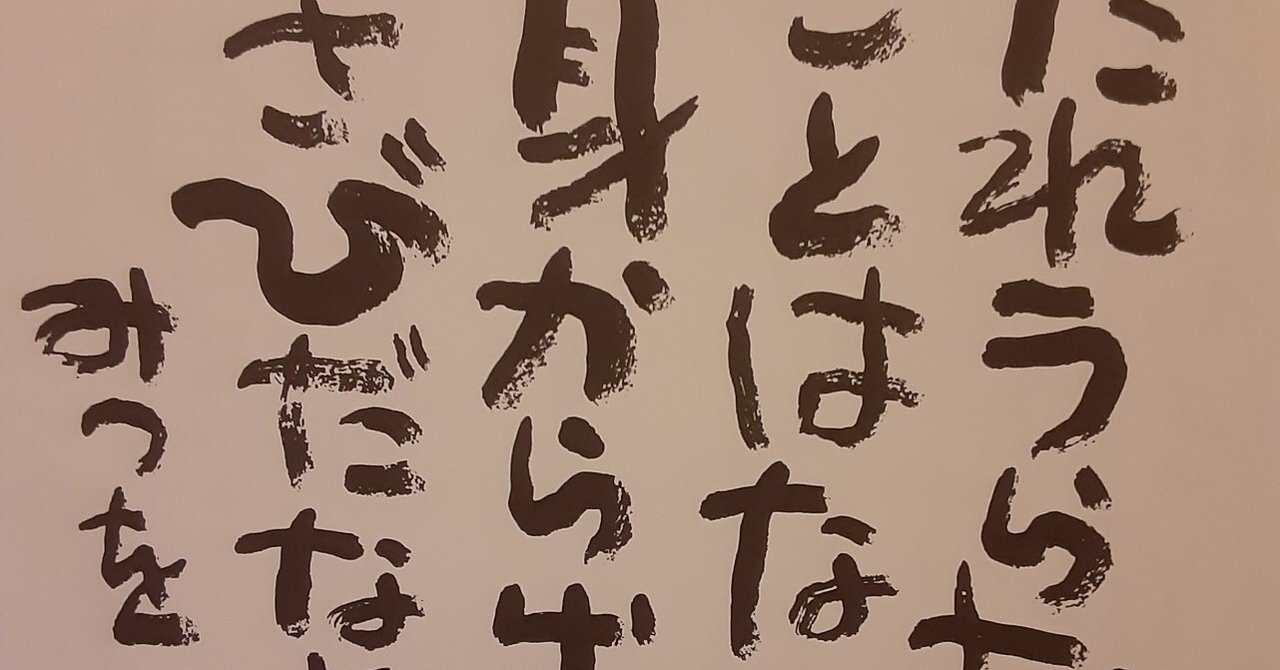 たれうら
ことはな
身から
さびだな
みつを